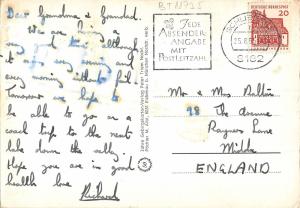 BT11935
Dear Grandma & Grandad.
We are having a
very good time although
it rains every evening and
every morning without fail
Tomorrow we hope to
be able to go on a
coach trip to the next
lake down the valley.
Hope you are in good
health love
Richard
JEDE
ABSENDER-
ANGABE
MIT
POSTLEITZAHL
8162
DEUTSCHE BUNDESPOST
20
Mr & Mrs
28 The Avenue
Rayners Lane
Middx
ENGLAND